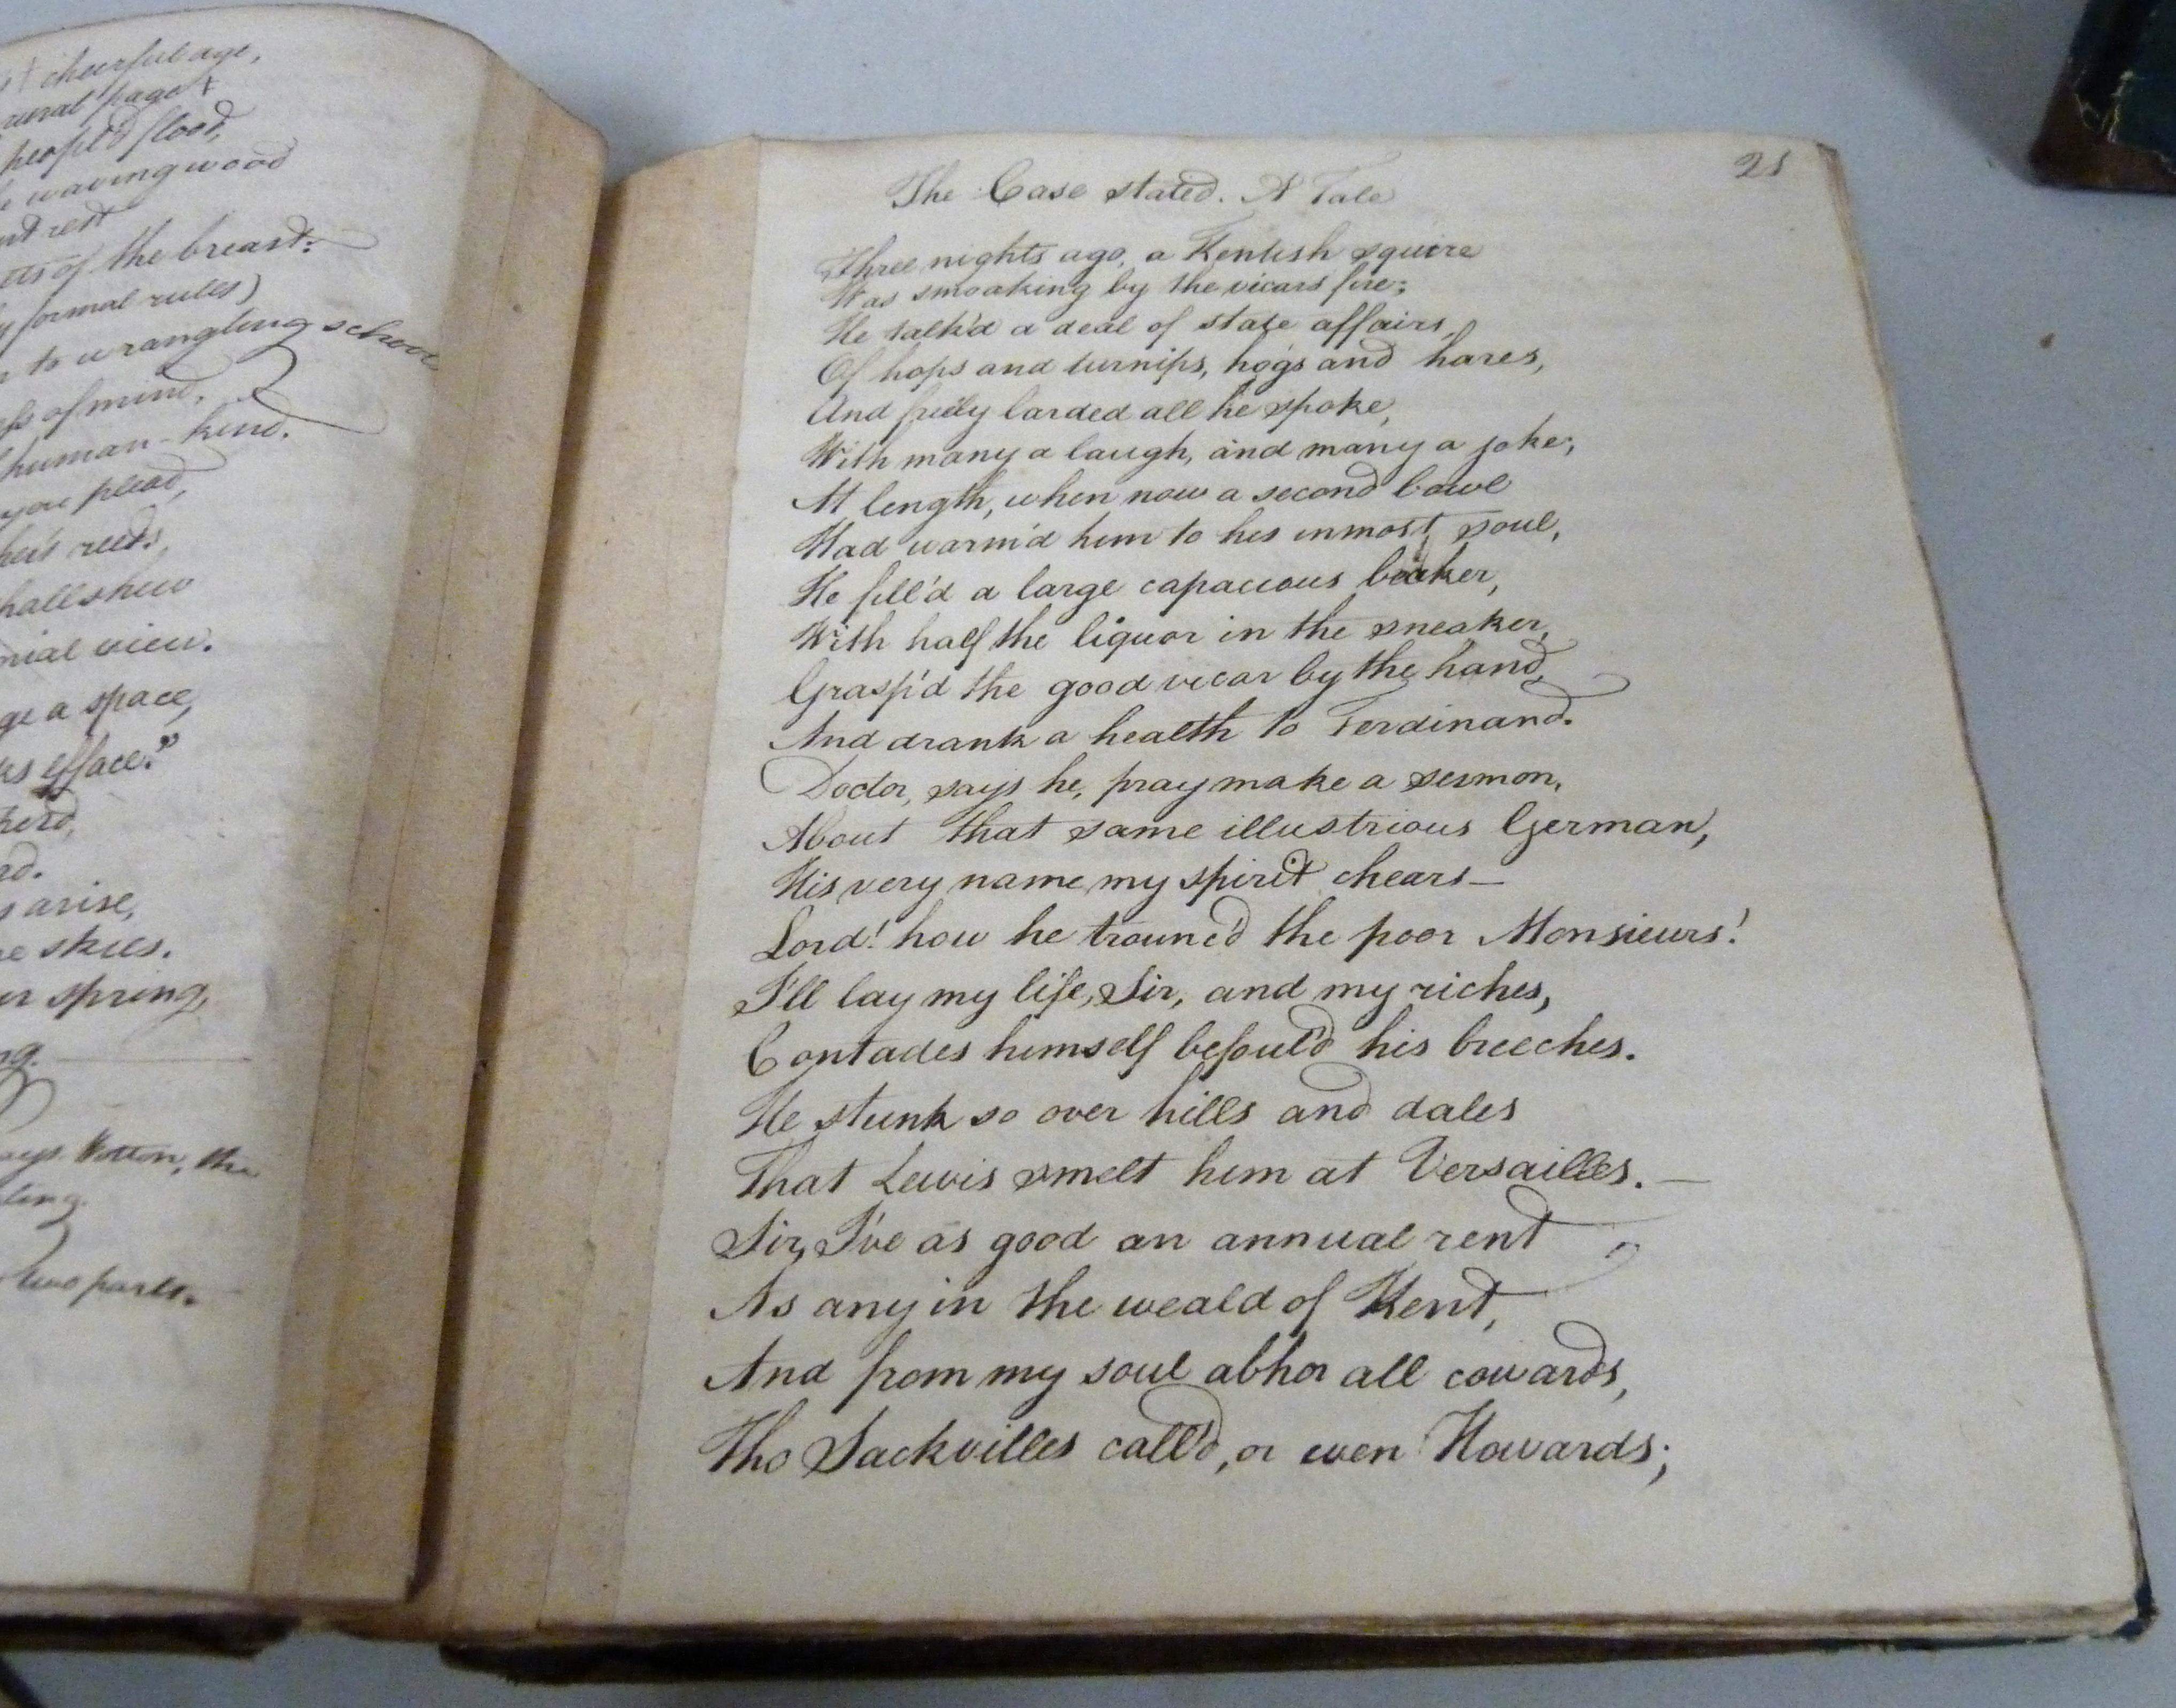 cheerful age,
rural page +
peopl'd flood,
waving wood
rest
of the breast:
formal rules)
to wrangling school
of mind,
human-kind.
you plead,
reeds,
shall shew
view.
a space,
efface."
arise,
skies.
spring,
says Wotton, the
two parts.
21
The Case stated. A Tale
Three nights ago, a Kentish squire
Was smoaking by the vicars fire;
He talk'd a deal of state affairs,
Of hops and turnips, hogs and hares,
And freely larded all he spoke,
With many a laugh, and many a joke;
At length, when now a second bowl
Had warm'd him to his inmost soul,
He fill'd a large capacious beaker,
With half the liquor in the sneaker,
Grasp'd the good vicar by the hand,
And drank a health to Ferdinand.
Doctor, says he, pray make a sermon,
About that same illustrious German,
His very name my spirit chears—
Lord! how he trounc'd the poor Monsieurs!
I'll lay my life, Sir, and my riches,
Contades himself befoul'd his breeches.
He stunk so over hills and dales
That Lewis smelt him at Versailles. —
Sir, I've as good an annual rent
As any in the weald of Kent,
And from my soul abhor all cowards,
Tho Sackvilles call'd, or even Howards;